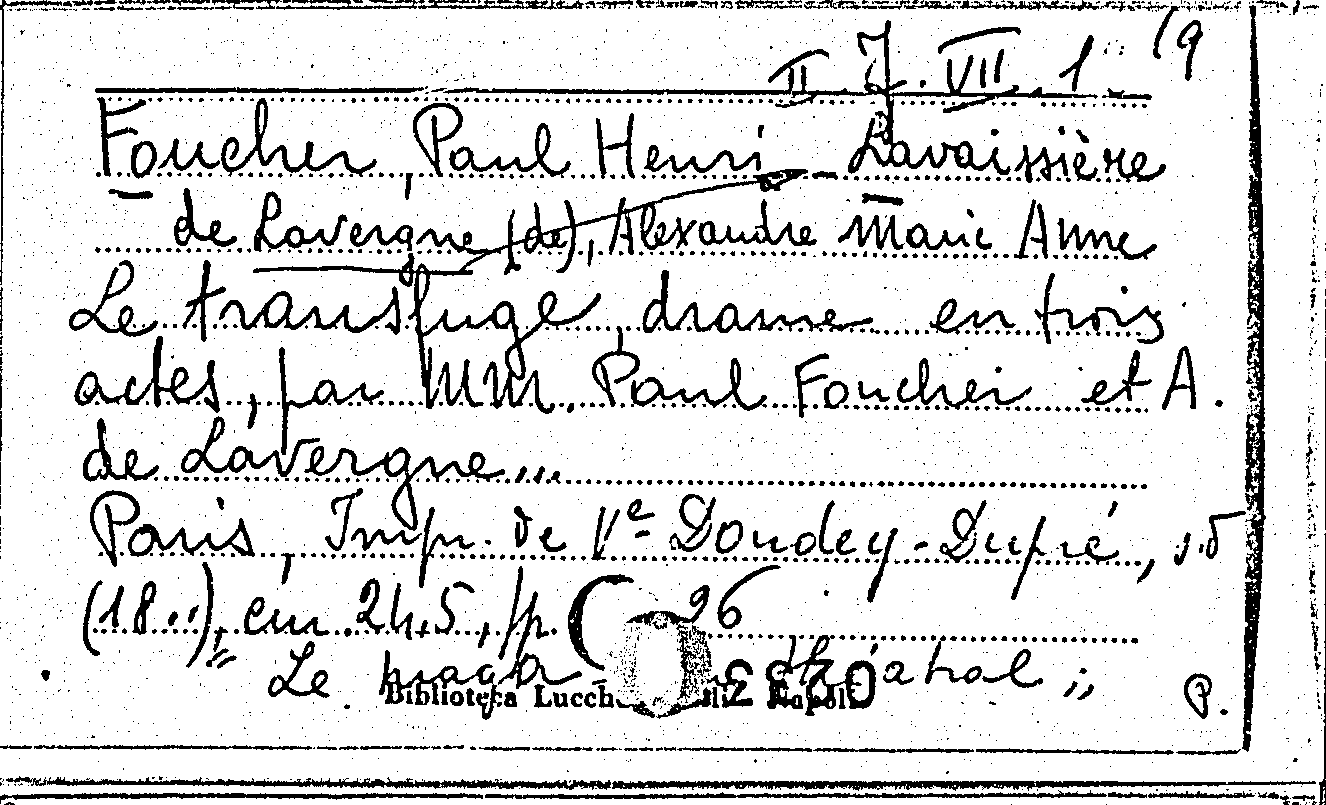 II. J. VII. 1. (9
Foucher, Paul Henri - Lavaissière
de Lavergne (de), Alexandre Marie Anne
Le transfuge, drame en trois
actes, par MM. Paul Foucher et A.
de Lavergne...
Paris, Impr. de Ve Dondey-Dupré, s.d
(18..), cm. 24,5, pp. 26
Le
Biblioteca Napoli
P.